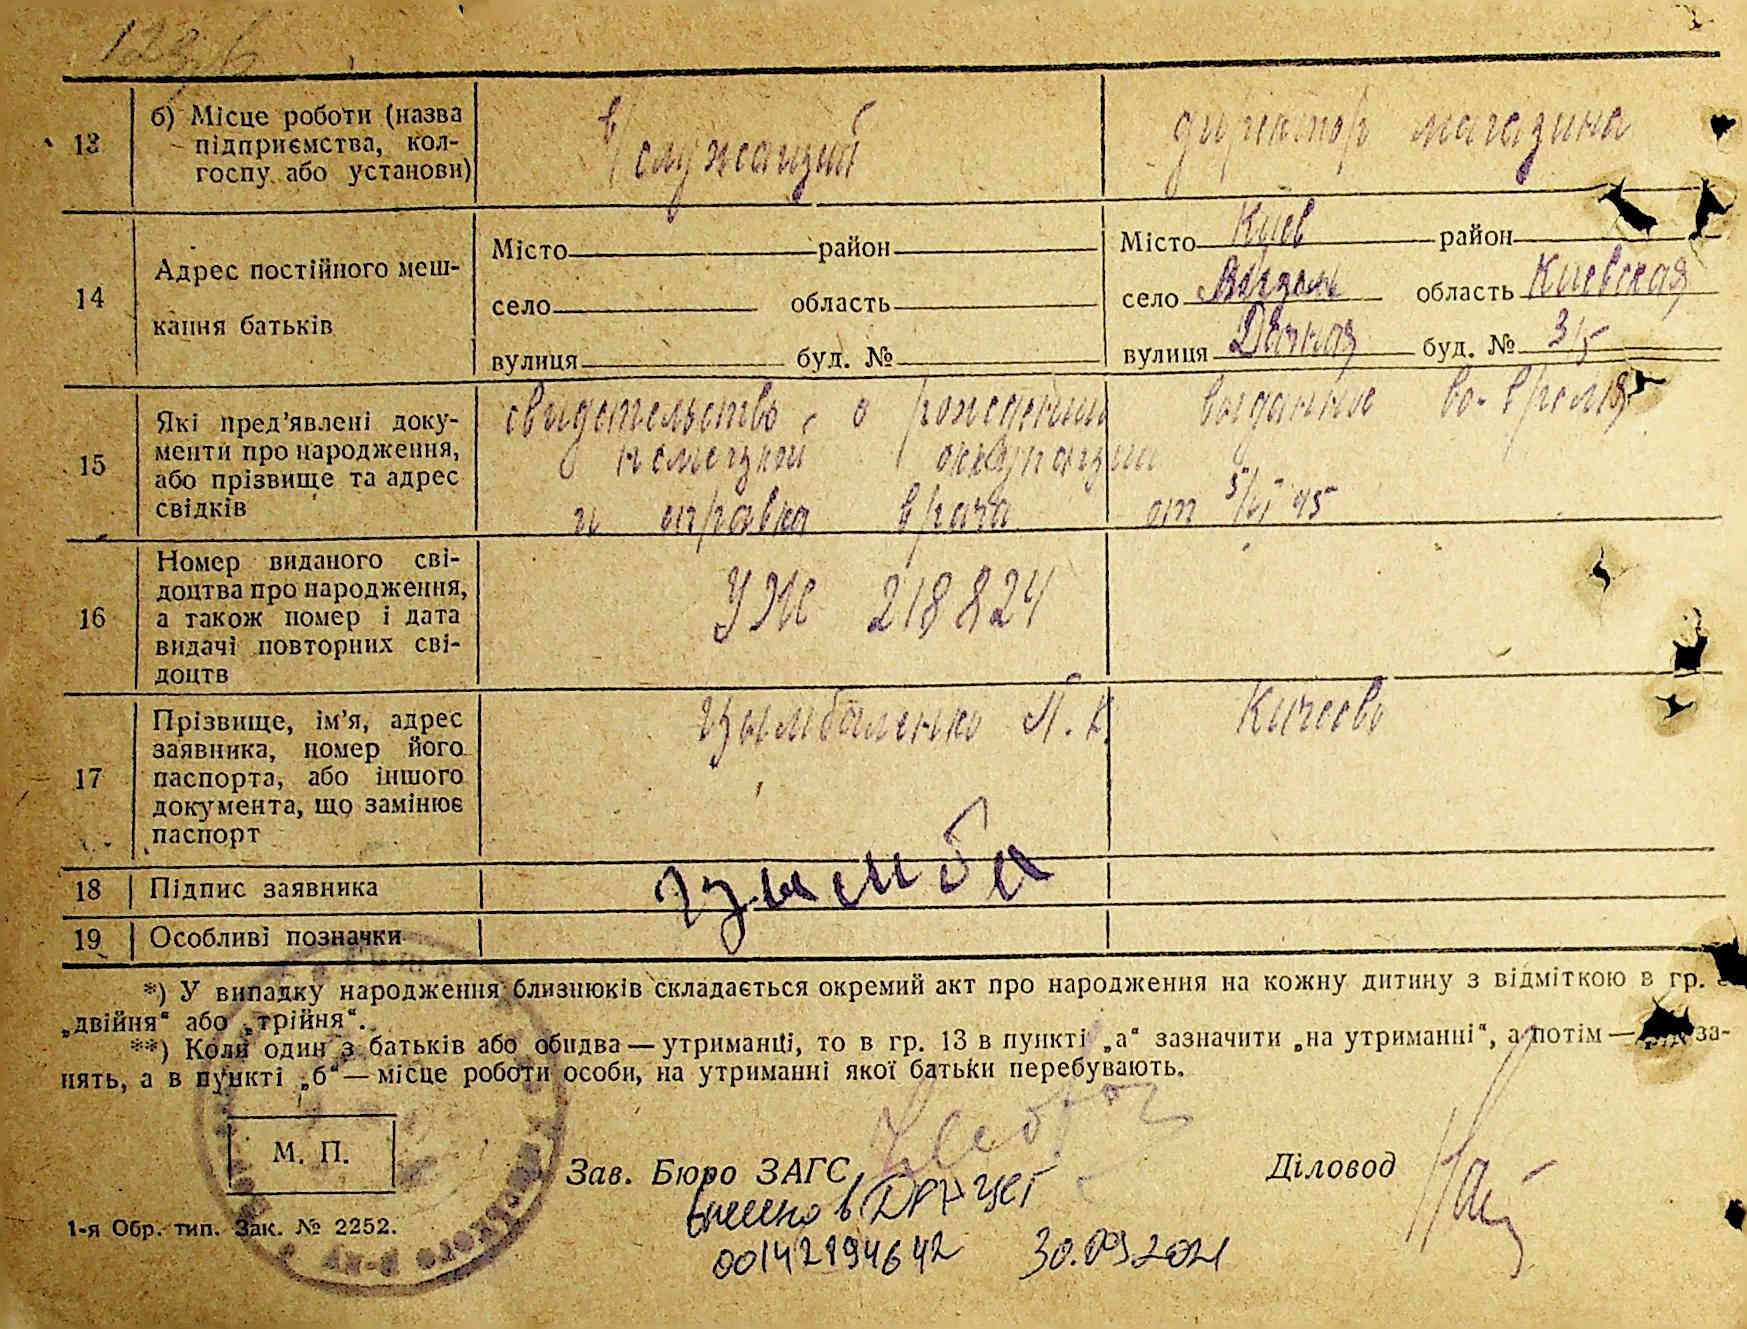 13
б) Місце роботи (назва
підприємства, кол-
госпу або установи)
служащий
директор магазина
14
Адрес постійного меш-
кання батьків
Місто район
село область
вулиця буд. №
Місто Киев район
село область Киевская
вулиця Дачная буд. № 315
15
Які пред'явлені доку-
менти про народження,
або прізвище та адрес
свідків
свидетельство о рождении выданное во время
немецкой оккупации
и справка врача от 5/VI 45
16
Номер виданого сві-
доцтва про народження,
а також номер і дата
видачі повторних сві-
доцтв
УЖ 218824
17
Прізвище, ім'я, адрес
заявника, номер його
паспорта, або іншого
документа, що замінює
паспорт
Цымбаленко П. К. Кичеево
18
Підпис заявника
Цымба
19
Особливі позначки
*) У випадку народження близнюків складається окремий акт про народження на кожну дитину з відміткою в гр.
„двійня“ або „трійня“.
**) Коли один з батьків або обидва — утриманці, то в гр. 13 в пункті „а“ зазначити „на утриманні“, а потім — за-
нять, а в пункті „б“ — місце роботи особи, на утриманні якої батьки перебувають.
М. П.
Зав. Бюро ЗАГС
Діловод
внесено в ДРАЦСГ
00142194642 30.09.2021
1-я Обр. тип. Зак. № 2252.